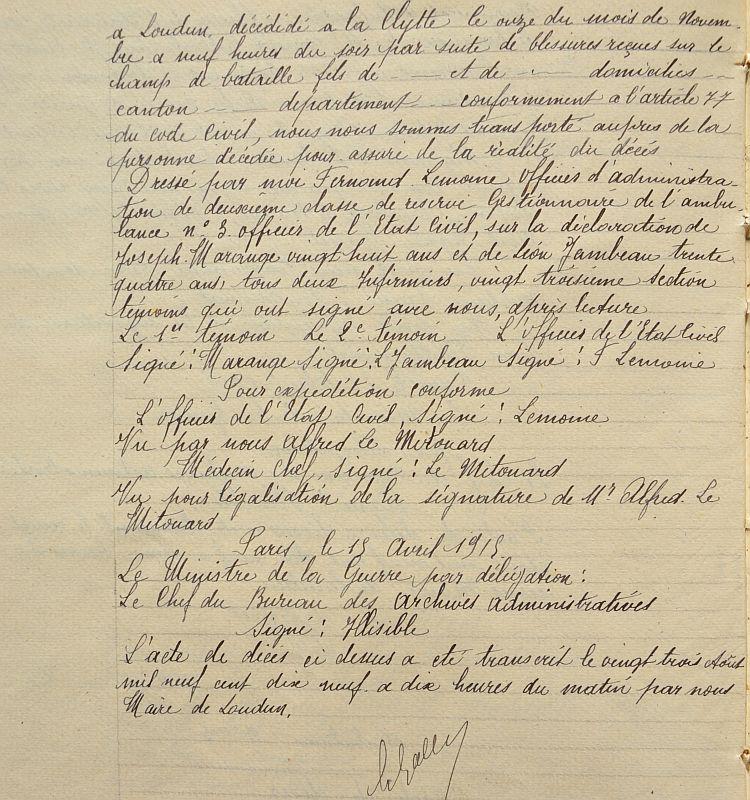 a Loudun, décédidé a la Clytte le onze du mois de Novem-
bre a neuf heures du soir par suite de blessures reçues sur le
champ de bataille fils de — et de — domiciliés —
canton — département — conformement a l'article 77
du code Civil, nous nous sommes transporté aupres de la
personne décédée pour assuré de la réalité du décés
Dressé par moi Fernand Lemoine Officier d'administra-
tion de deuxieme classe de reserve Gestionnaire de l'ambu-
lance n° 3. officier de l'Etat Civil, sur la déclaration de
Joseph Marange vingt huit ans et de Léon Jambeau trente
quatre ans, tous deux Infirmiers, vingt troisieme Section
témoins qui ont signé avec nous, apris lecture
Le 1er témoin Le 2e témoin L'Officier de l'Etat Civil
Signé: Marange Signé: L Jambeau Signé: F Lemoine
Pour expédition conforme
L'officier de l'Etat Civil, Signé: Lemoine
Vu par nous Alfred Le Mitouard
Médecin Chef, signé: Le Mitouard
Vu pour légalisation de la signature de Mr Alfred Le
Mitouard
Paris, le 15 Avril 1915.
Le Ministre de la Guerre par délégation:
Le Chef du Bureau des Archives Administratives
Signé: Illisible
L'acte de décès ci dessus a eté transcrit le vingt trois Août
mil neuf cent dix neuf a dix heures du matin par nous
Maire de Loudun.